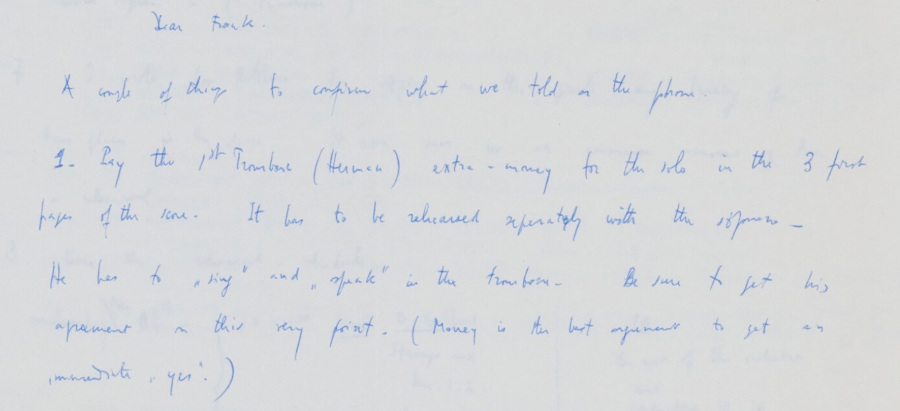 Dear Frank.
A couple of things to confirm what we told on the phone.
1. Pay the 1st Trombone (Herman) extra-money for the solo in the 3 first
pages of the score. It has to be rehearsed seperately with the soprano -
He has to „sing" and „speak" in the trombone. Be sure to get his
agreement on this very point. (Money is the best argument to get an
immediate „yes".)